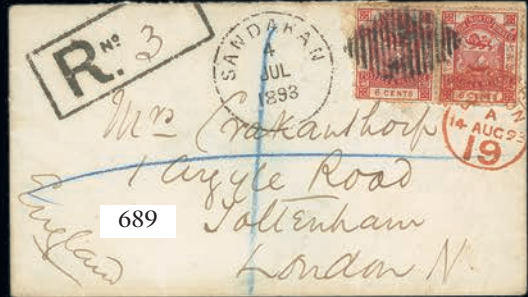 R. No 3
SANDAKAN
4
JUL
1893
6 CENTS
6 CENTS
A
14 AUG 93
19
Mrs Crakanthorp
1 Argyle Road
Tottenham
London N.
England
689